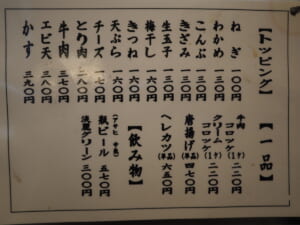 【トッピング】
ねぎ 一〇〇円
わかめ 一〇〇円
こんぶ 一三〇円
きざみ 一三〇円
生玉子 一三〇円
梅干し 一六〇円
きつね 一六〇円
天ぷら 一六〇円
チーズ 一七〇円
とり肉 二八〇円
牛肉 三七〇円
エビ天 三八〇円
かす 三九〇円
【一品】
牛肉コロッケ(1ケ) 二二〇円
クリームコロッケ(1ケ) 二二〇円
唐揚げ(単品) 四七〇円
ヘレカツ(単品) 六五〇円
【飲み物】
(アサヒ 中瓶)
瓶ビール 五七〇円
淡麗グリーン 三〇〇円